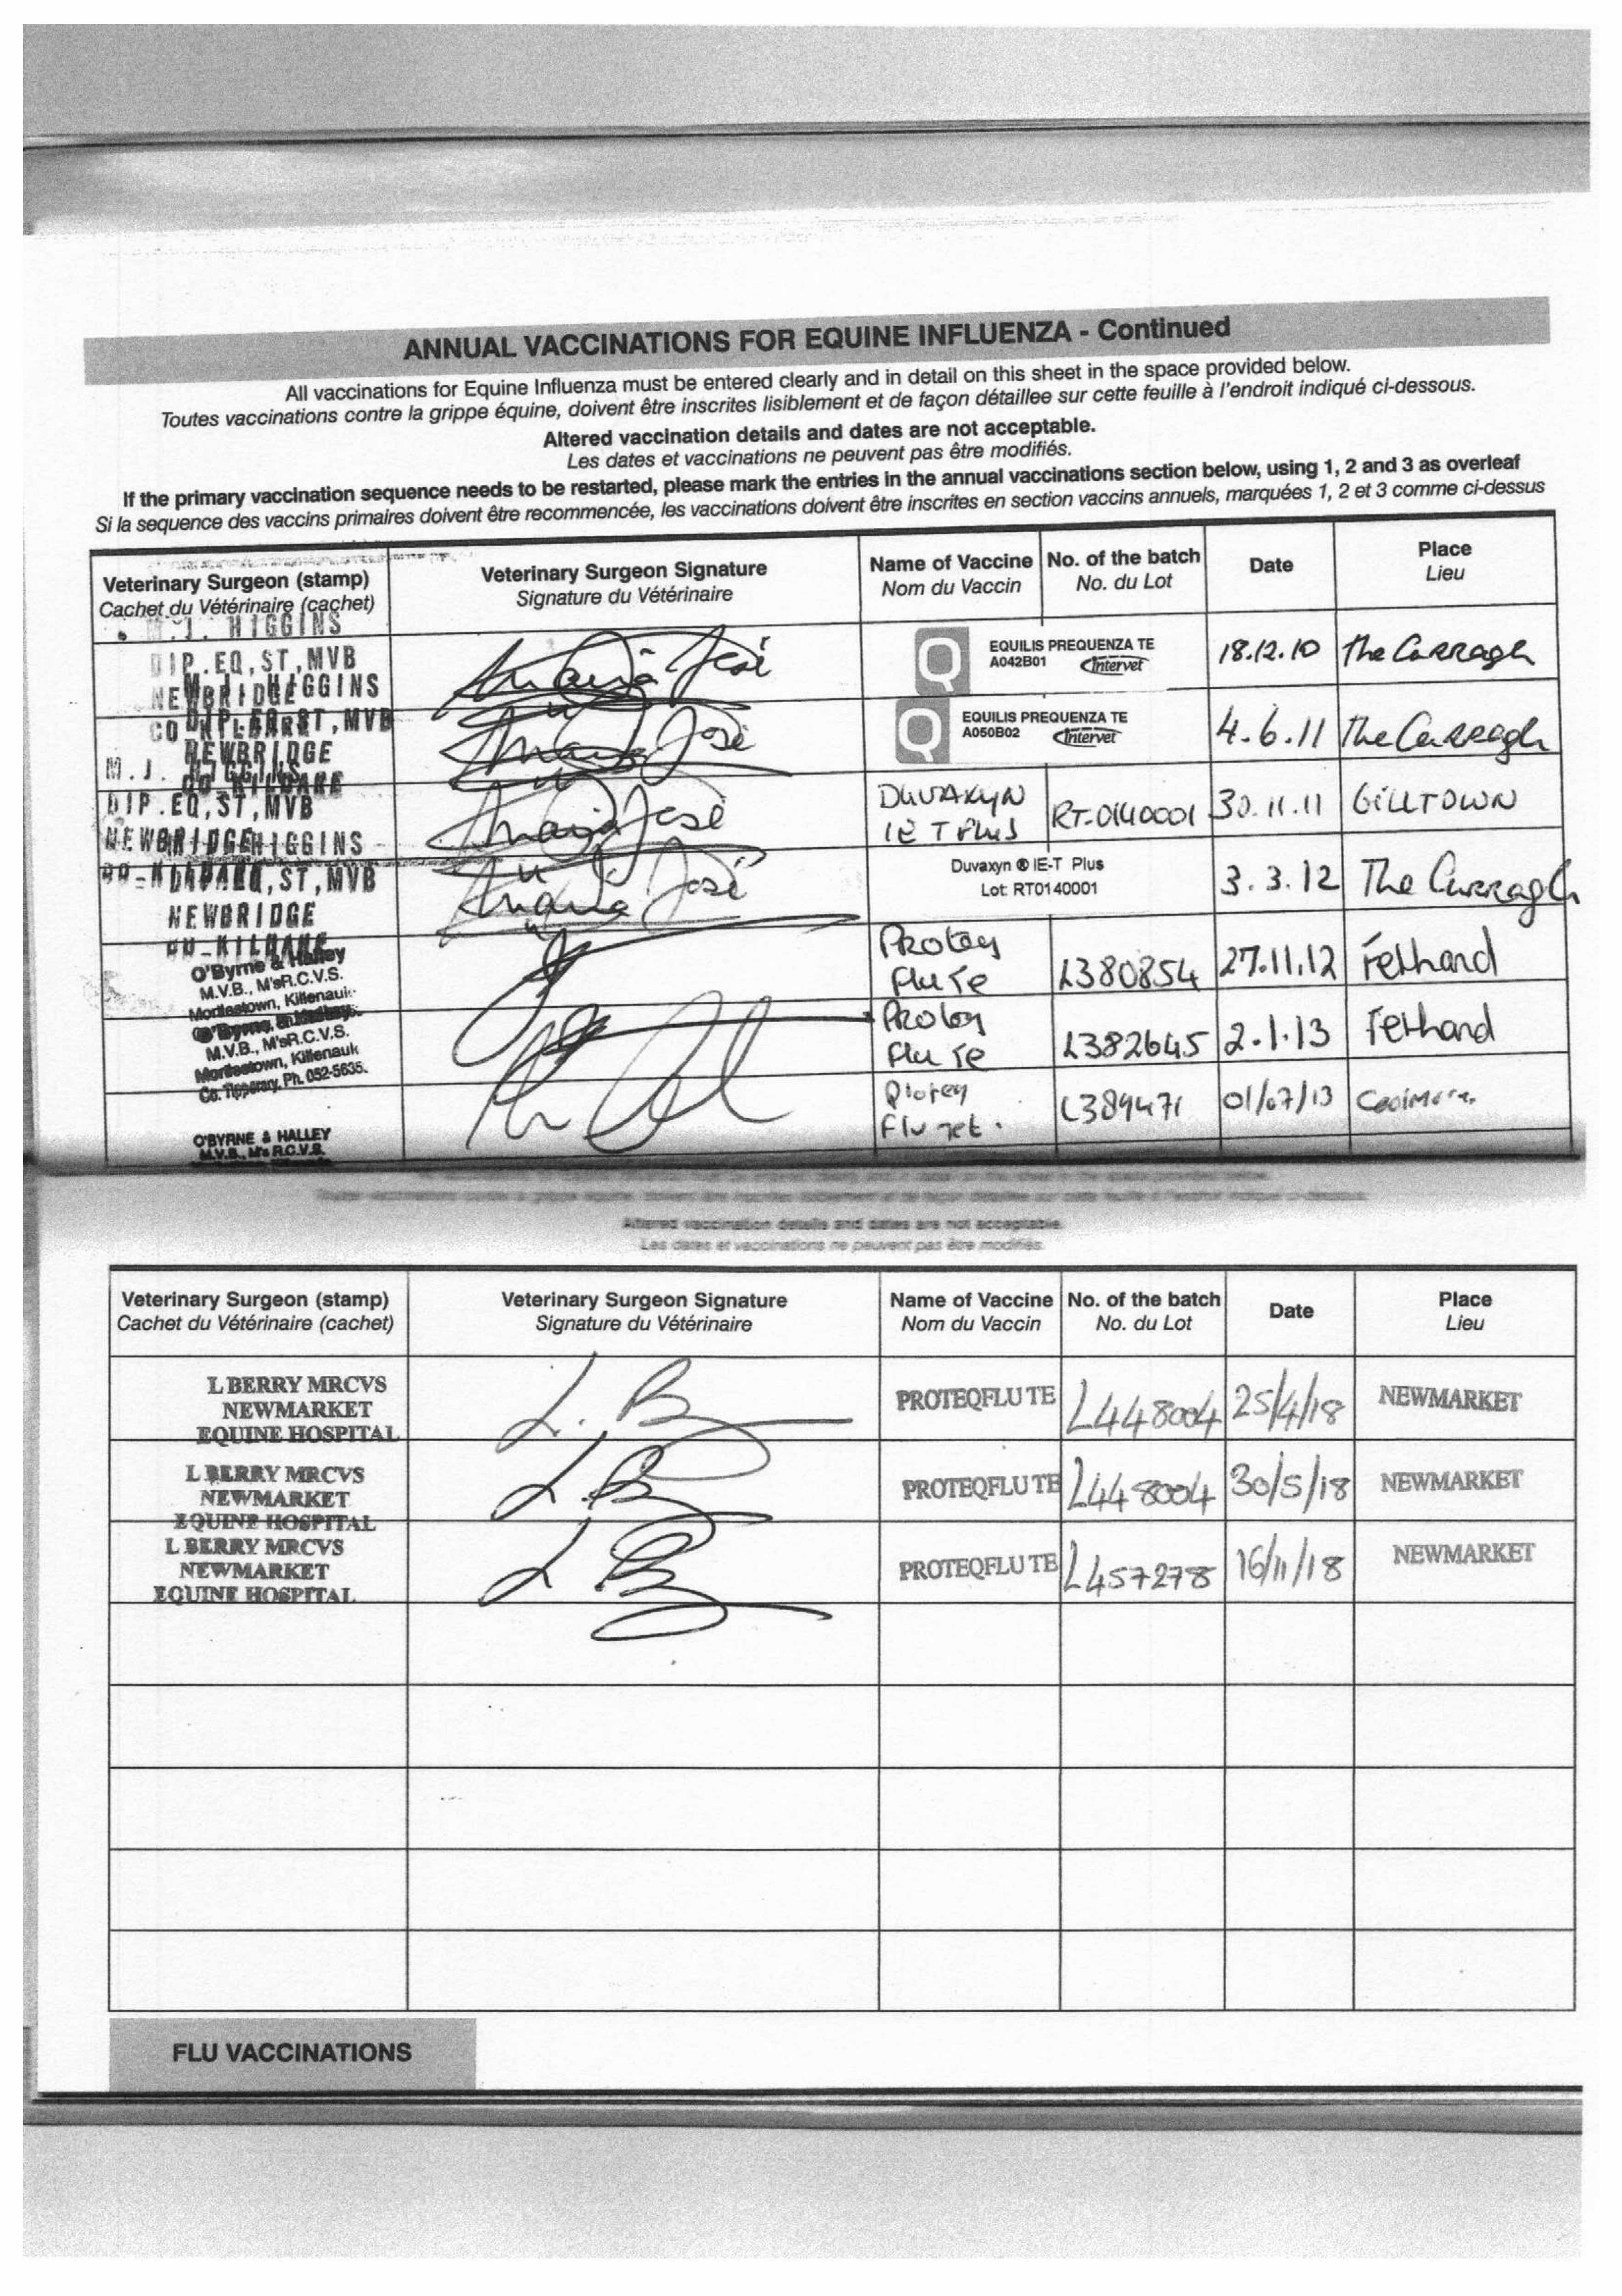 ANNUAL VACCINATIONS FOR EQUINE INFLUENZA - Continued
All vaccinations for Equine Influenza must be entered clearly and in detail on this sheet in the space provided below.
Toutes vaccinations contre la grippe équine, doivent être inscrites lisiblement et de façon détaillee sur cette feuille à l'endroit indiqué ci-dessous.
Altered vaccination details and dates are not acceptable.
Les dates et vaccinations ne peuvent pas être modifiés.
If the primary vaccination sequence needs to be restarted, please mark the entries in the annual vaccinations section below, using 1, 2 and 3 as overleaf
Si la sequence des vaccins primaires doivent être recommencée, les vaccinations doivent être inscrites en section vaccins annuels, marquées 1, 2 et 3 comme ci-dessus
Veterinary Surgeon (stamp) Veterinary Surgeon Signature Name of Vaccine No. of the batch Date Place
Cachet du Vétérinaire (cachet) Signature du Vétérinaire Nom du Vaccin No. du Lot Lieu
M.J. HIGGINS
DIP.EQ,ST,MVB
NEWBRIDGE
CO-KILDARE
Maria José
Q EQUILIS PREQUENZA TE
A042B01 Intervet
18.12.10 The Curragh
HIGGINS
DIP.EQ,ST,MVB
NEWBRIDGE
CO-KILDARE
Maria José
Q EQUILIS PREQUENZA TE
A050B02 Intervet
4.6.11 The Curragh
M.J. HIGGINS
DIP.EQ,ST,MVB
NEWBRIDGE
CO-KILDARE
Maria José
DUVAXYN
IE T PLUS
RT-0140001 30.11.11 GILLTOWN
HIGGINS
ST,MVB
NEWBRIDGE
CO-KILDARE
Maria José
Duvaxyn ® IE-T Plus
Lot: RT0140001
3.3.12 The Curragh
O'Byrne & Halley
M.V.B., M'sR.C.V.S.
Mortlestown, Killenaule
Proteq
Flu Te
L380854 27.11.12 Fethard
O'Byrne & Halley
M.V.B., M'sR.C.V.S.
Mortlestown, Killenauk
Co. Tipperary, Ph. 052-5635.
Proteq
Flu Te
L382645 2.1.13 Fethard
O'BYRNE & HALLEY
M.V.B., M's R.C.V.S.
L389471 01/07/13 Coolmore
Toutes vaccinations contre la grippe équine, doivent être inscrites lisiblement et de façon détaillee sur cette feuille à l'endroit indiqué ci-dessous.
Altered vaccination details and dates are not acceptable.
Les dates et vaccinations ne peuvent pas être modifiés.
Veterinary Surgeon (stamp) Veterinary Surgeon Signature Name of Vaccine No. of the batch Date Place
Cachet du Vétérinaire (cachet) Signature du Vétérinaire Nom du Vaccin No. du Lot Lieu
L BERRY MRCVS
NEWMARKET
EQUINE HOSPITAL
L. B
PROTEQFLU TE L448004 25/4/18 NEWMARKET
L BERRY MRCVS
NEWMARKET
EQUINE HOSPITAL
L. B
PROTEQFLU TE L448004 30/5/18 NEWMARKET
L BERRY MRCVS
NEWMARKET
EQUINE HOSPITAL
L. B
PROTEQFLU TE L457278 16/11/18 NEWMARKET
FLU VACCINATIONS